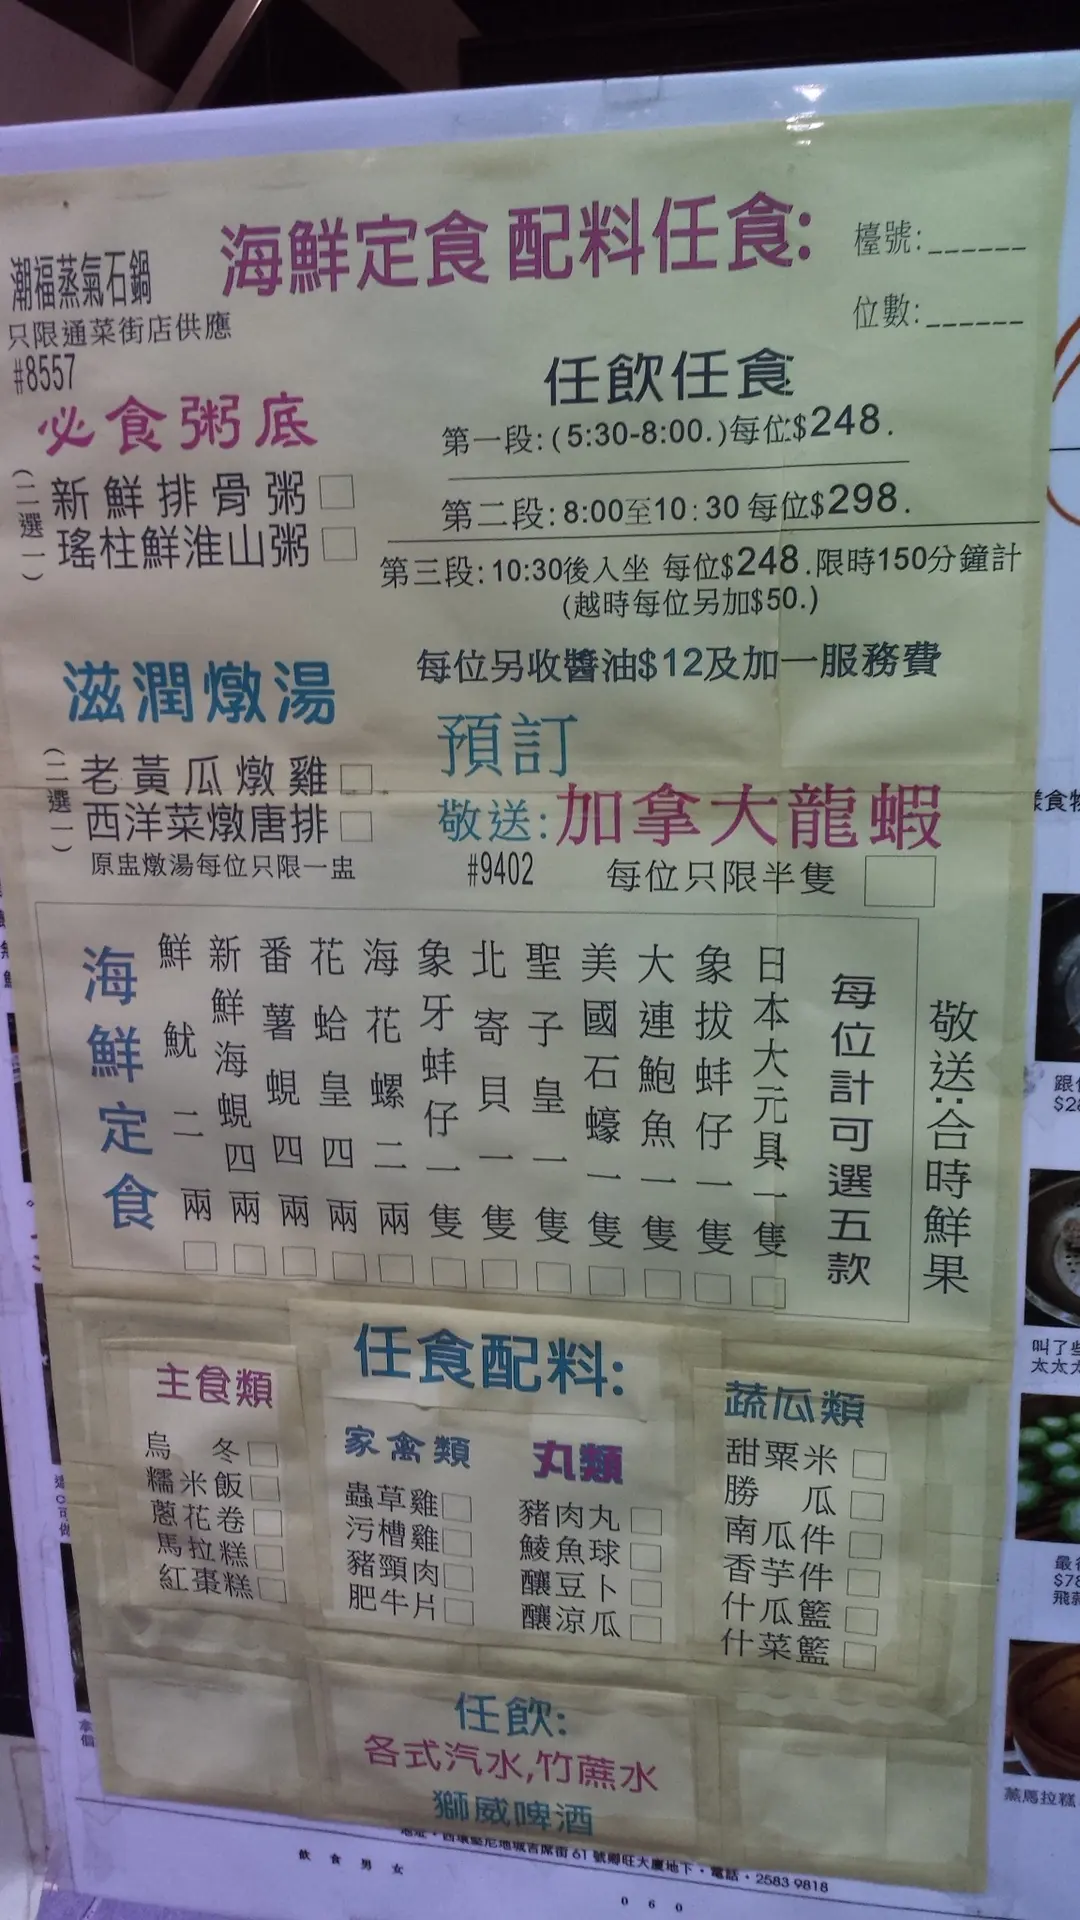 海鮮定食 配料任食:
檯號:______
位數:______
潮福蒸氣石鍋
只限通菜街店供應
#8557
必食粥底
(二選一)
新鮮排骨粥
瑤柱鮮淮山粥
任飲任食
第一段:(5:30-8:00.)每位$248.
第二段:8:00至10:30 每位$298.
第三段:10:30後入坐 每位$248.限時150分鐘計
(越時每位另加$50.)
每位另收醬油$12及加一服務費
滋潤燉湯
(二選一)
老黃瓜燉雞
西洋菜燉唐排
原盅燉湯每位只限一盅
預訂
敬送:加拿大龍蝦
#9402
每位只限半隻
海鮮定食
鮮魷二兩
新鮮海蜆四兩
番薯蜆四兩
花蛤皇四兩
海花螺二兩
象牙蚌仔一隻
北寄貝一隻
聖子皇一隻
美國石蠔一隻
大連鮑魚一隻
象拔蚌仔一隻
日本大元具一隻
每位計可選五款
敬送:合時鮮果
任食配料:
主食類
烏冬
糯米飯
蔥花卷
馬拉糕
紅棗糕
家禽類
蟲草雞
污槽雞
豬頸肉
肥牛片
丸類
豬肉丸
鯪魚球
釀豆卜
釀涼瓜
蔬瓜類
甜粟米
勝瓜
南瓜件
香芋件
什瓜籃
什菜籃
任飲:
各式汽水,竹蔗水
獅威啤酒
地址・西環堅尼地城吉席街61號卿旺大廈地下・電話・2583 9818
飲食男女
060
跟
叫了些
太太太
最
飛
蒸馬拉糕